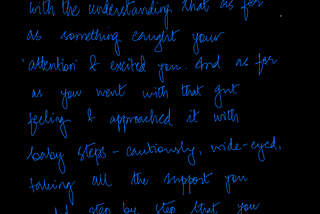 with the understanding that as far
as something caught your
attention & excited you. And as far
as you went with that gut
feeling & approached it with
baby steps - cautiously, wide-eyed,
taking all the support you
step by step that you